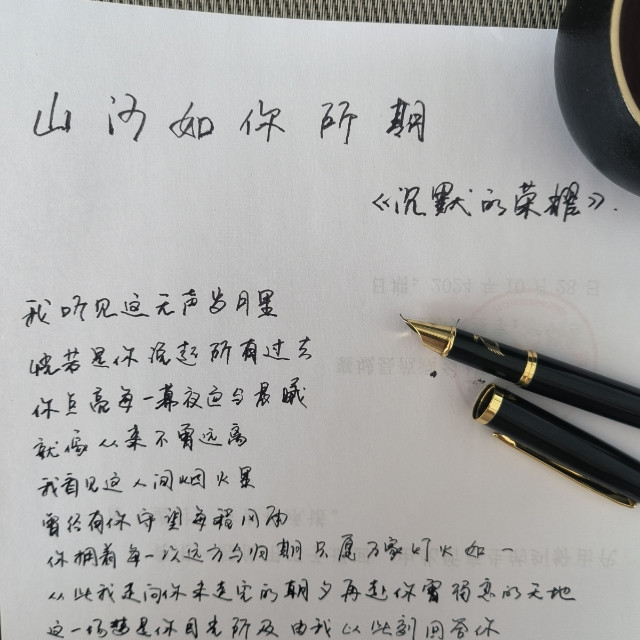 山河如你所期
《沉默的荣耀》.
我听见这无声岁月里
恍若是你说起所有过去
你点亮每一幕夜色与晨曦
就像从来不曾远离
我看见这人间烟火里
曾经有你守望每程风雨
你拥着每一次远方与归期只愿万家灯火如一
从此我走向你未走完的朝夕再赴你曾独恋的天地
这一场 是你目光所及由我以此刻回答你
日期：2024年10月28日